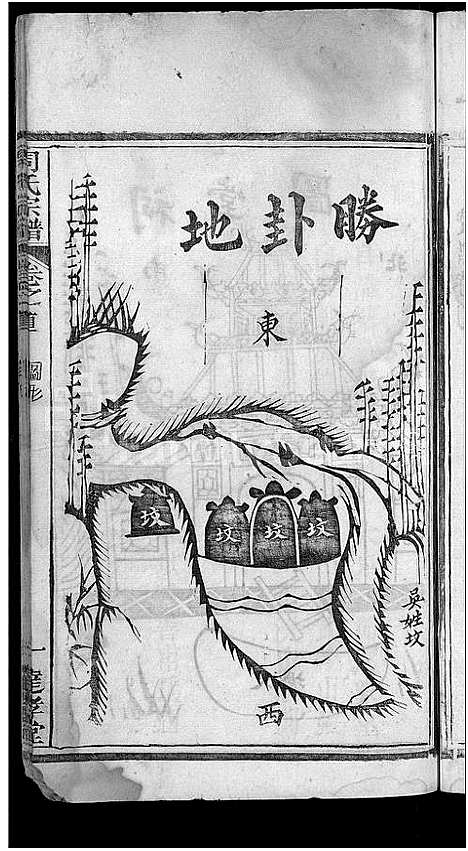 勝卦地
東
坟
坟
坟
坟
吳姓坟
西
周氏宗譜
卷之首
圖形
一